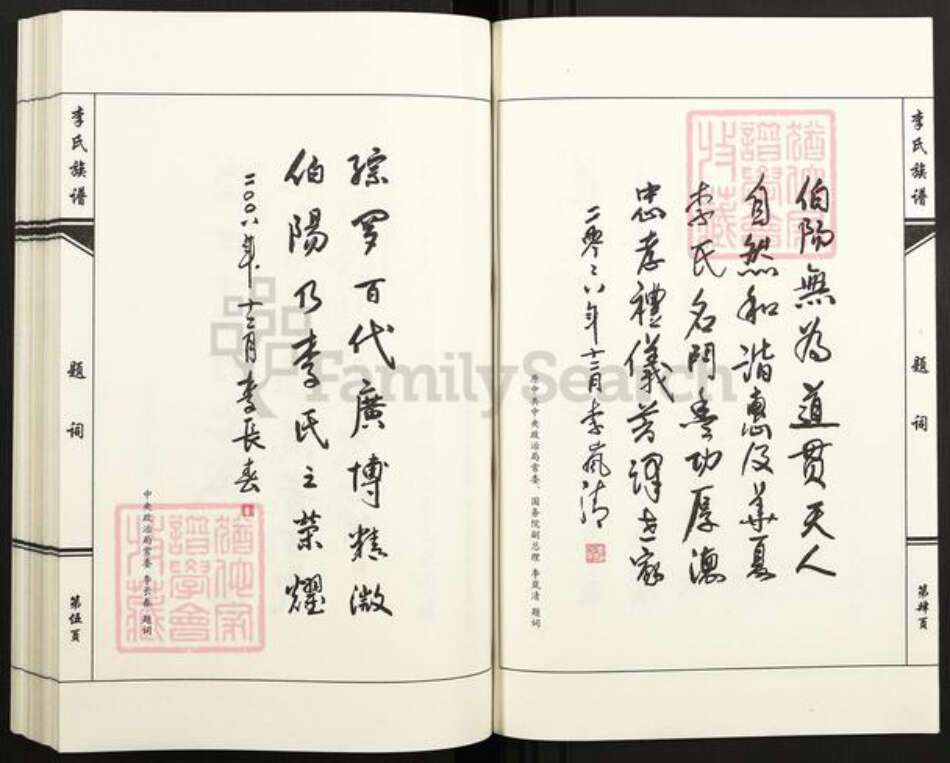 李氏族谱
题词
第肆页
伯陽無為道贯天人
自然和諧惠及華夏
李氏名門豊功厚德
忠孝禮儀蓍譯世家
二零零八年十二月李岚清
原中共中央政治局常委、国务院副总理 李岚清 题词
綜罗百代廣博精微
伯陽乃李氏之荣耀
二〇〇八年十二月李長春
中央政治局常委 李长春 题词
李氏族谱
题词
第伍页
FamilySearch